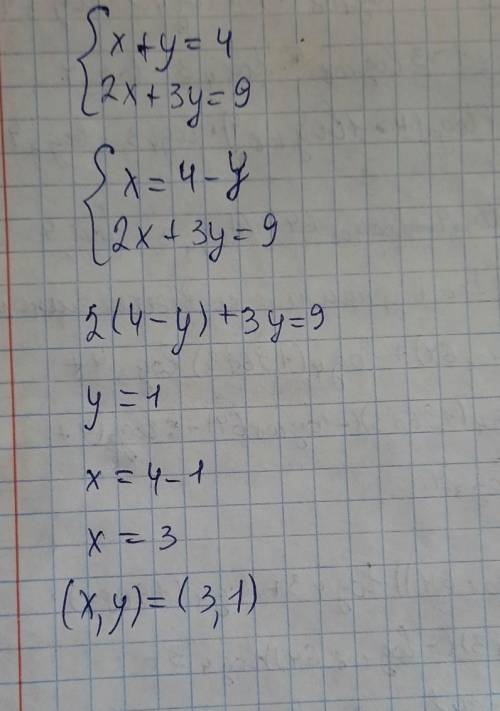 { x + y = 4
2x + 3y = 9
{ x = 4 - y
2x + 3y = 9
2(4 - y) + 3y = 9
y = 1
x = 4 - 1
x = 3
(x, y) = (3, 1)